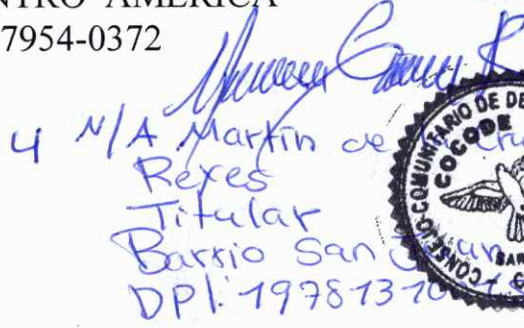 CENTRO AMERICA
7954-0372
4 N/A Martín de la Cruz
Reyes
Titular
Barrio San Juan
DPI. 197813
CONSEJO COMUNITARIO DE DE
COCODE
BAR